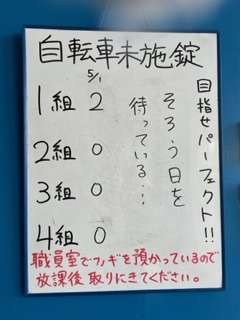 自転車未施錠
目指せパーフェクト!!
そろう日を
待っている…
5/1
1組 2
2組 0
3組 0
4組 0
職員室でカギを預かっているので
放課後取りにきてください。